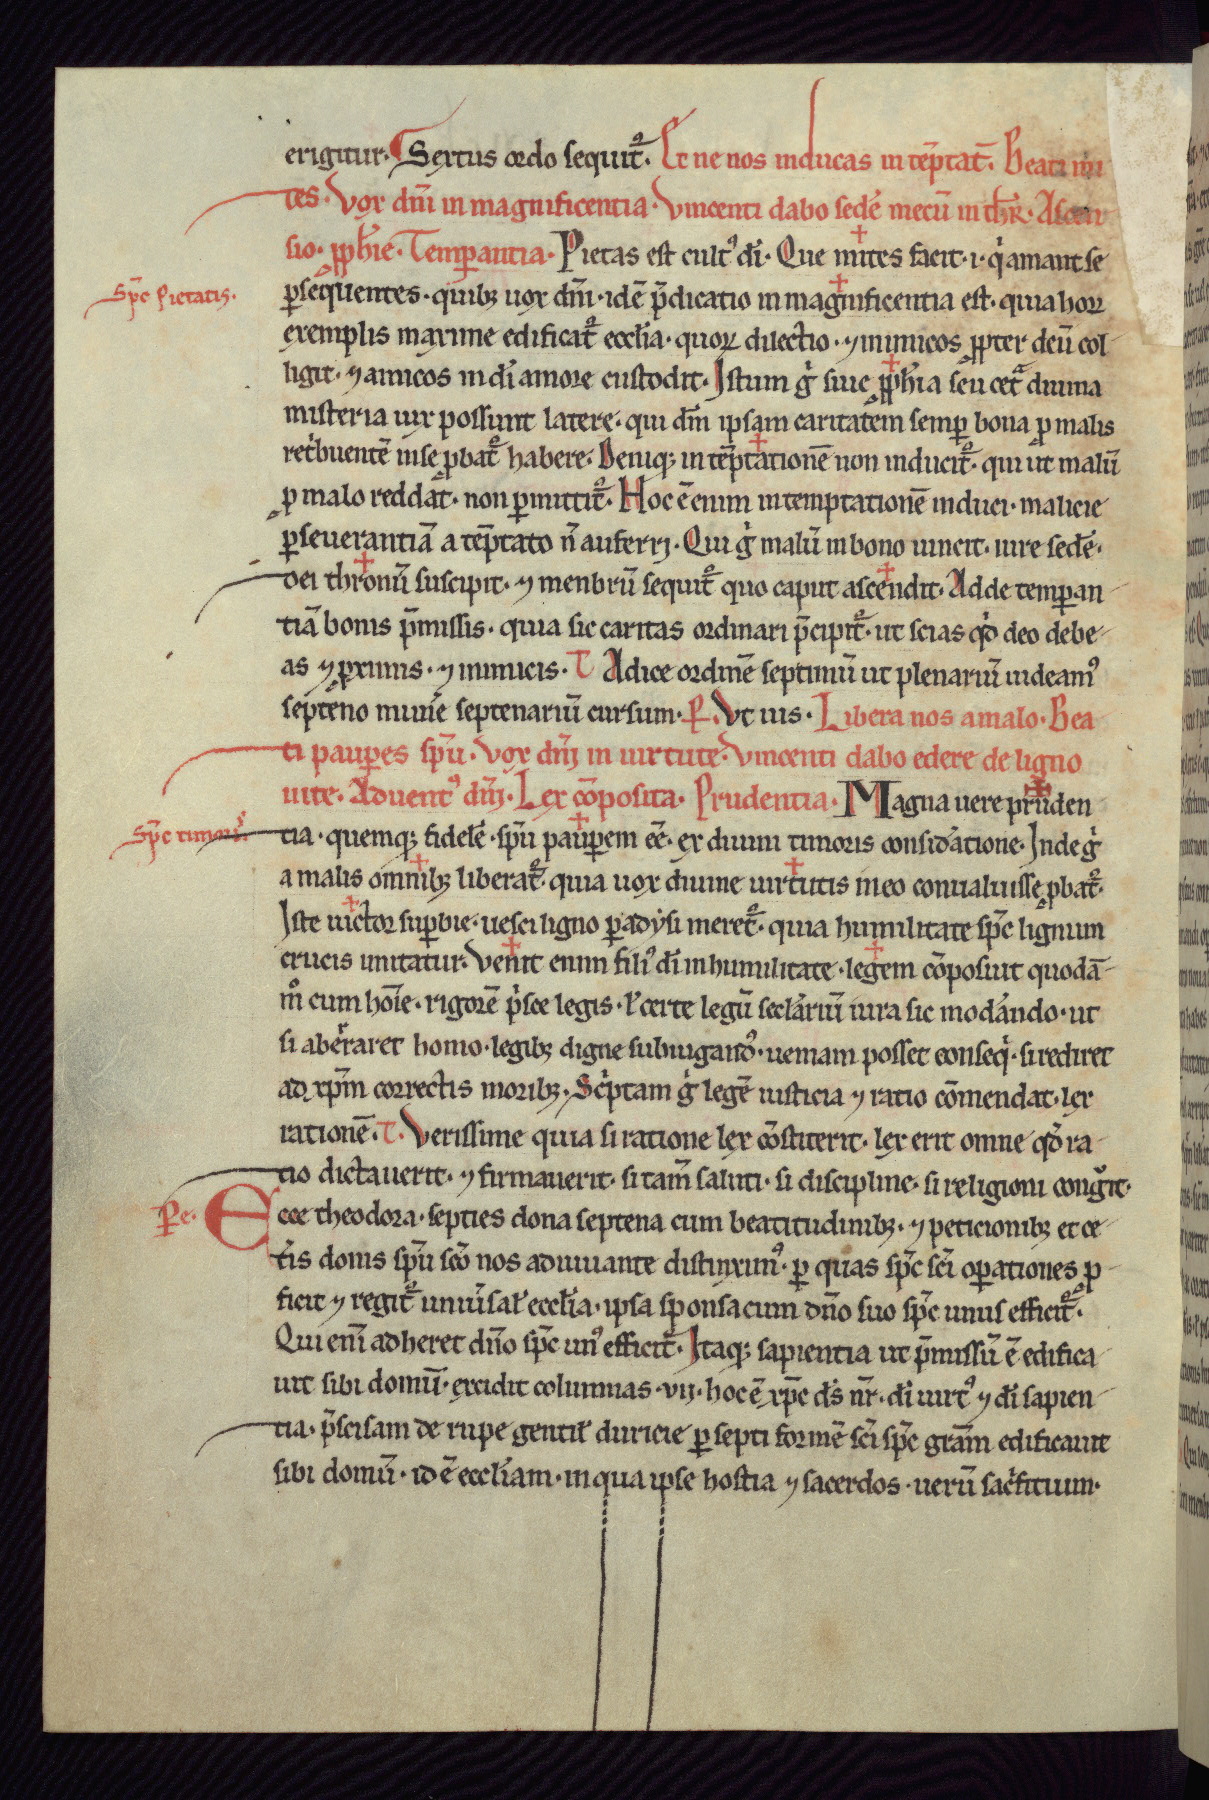 erigitur· Sextus ordo sequit᷑· Et ne nos inducas in tēptat̄· Beati mi
tes· Vox dm̄i in magnificentia· Vincenti dabo sedē mecū in thr̄· Ascen
sio· ꝓph̄ie· Temꝑantia· Pietas est cultꝰ dī· Que mites facit· i· qͥ amant se
Sp̄c Pietatis·
ꝑsequentes· quibꝫ uox dm̄i· idē p̄dicatio in magnificentia est· quia hoꝝ
exemplis maxime edificat᷑ eccl̄ia· quoꝝ dilectio· ⁊ inimicos ꝓpter deū col
ligit· ⁊ amicos in dī amore custodit· Istum gͦ siue ꝓph̄ia seu cetͣ diuina
misteria uix possunt latere· qui dm̄ ipsam caritatem semꝑ bona ꝓ malis
retͥbuentē in se ꝓbat᷑ habere· Deniqꝫ in tēptationē non inducit᷑· qui ut malū
ꝓ malo reddat· non ꝑmittit᷑· Hoc ē enim in temptationē induci· malicie
ꝑseuerantiā a tēptato n̄ auferri· Qui gͦ malū in bono uincit· iure sedē·
dei thronū suscipit· ⁊ menbrū sequit᷑ quo caput ascendit· Adde temꝑan
tiā bonis p̄missis· quia sic caritas ordinari p̄cipit᷑· ut scias qd̄ deo debe
as ⁊ ꝓximis· ⁊ inimicis· T Adice ordinē septimū ut plenariū uideamꝰ
septeno munͥe septenariū cursum· P· Vt iuis· Libera nos a malo· Bea
ti pauꝑes sp̄u· Vox dm̄i in uirtute· Vincenti dabo edere de ligno
uite· Aduentꝰ dm̄i· Lex cōposita· Prudentia· Magna uere pruden
Sp̄c timoris
tia· quemqꝫ fidelē· sp̄u pauꝑem eē· ex diuini timoris considͣatione· Inde gͦ
a malis omnibꝫ liberat᷑· quia uox diuine uirtutis in eo conualuisse ꝓbat᷑·
Iste uictor suꝑbie· uesci ligno ꝑadysi meret᷑· quia humilitate sp̄c lignum
crucis imitatur· Venit enim filiꝰ dī in humilitate· legem cōposuit quodā
mͦ cum hoīe· rigorē pͥsce legis· ł certe legū seclariū iura sic modͣando· ut
si aberraret homo· legibꝫ digne subiugandꝰ· ueniam posset conseqͥ· si rediret
ad xp̄m correctis moribꝫ· Scͥptam gͦ legē iusticia ⁊ ratio cōmendat· lex
rationē· T· Verissime quia si ratione lex cōstiterit· lex erit omne qd̄ ra
tio dictauerit· ⁊ firmauerit· si tam̄ saluti· si discipline· si religioni congͦit·
Pe· Ecce theodora· septies dona septena cum beatitudinibꝫ· ⁊ peticionibꝫ et ce
tͥis donis sp̄u sc̄o nos adiuuante distinximꝰ· ꝑ quas sp̄c sc̄i oꝑationes ꝓ
ficit ⁊ regit᷑ uniuͥsal̄ eccl̄ia· ipsa sponsa cum dn̄o suo sp̄c unus efficit᷑·
Qui enī adheret dn̄o sp̄c unꝰ efficit᷑· Itaqꝫ sapientia ut p̄missū ē edifica
uit sibi domū· excidit columnas· vij· hoc ē xp̄c ds̄ nr̄· dī uirtꝰ ⁊ dī sapien
tia· p̄scisam de rupe gentił duricie ꝑ septi formē sc̄i sp̄c grām edificante
sibi domū· id ē eccl̄iam· in qua ipse hostia ⁊ sacerdos· uerū sacͥficium·